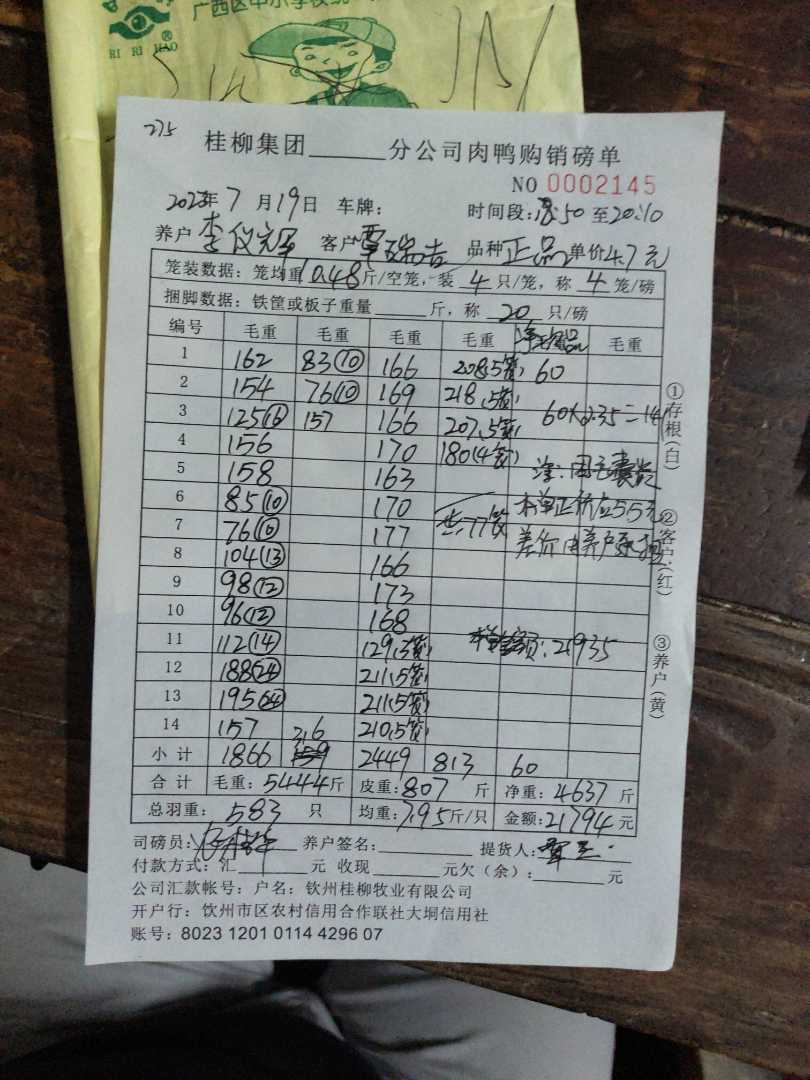 广西区中小学校
RI RI HAO ®
275
桂柳集团______分公司肉鸭购销磅单
NO 0002145
2023年7月19日 车牌: 时间段:18:50至20:10
养户 李仪 客户 覃瑞吉 品种 正品 单价4.7元
笼装数据: 笼均重10.48斤/空笼, 装4只/笼, 称4笼/磅
捆脚数据: 铁筐或板子重量______斤, 称20只/磅
编号 毛重 毛重 毛重 毛重 毛重
1 162 83(10) 166 208(5笼) 60
2 154 76(10) 169 218(5笼)
3 125(16) 157 166 207(5笼) 60×2.35=141
4 156 170 180(4笼)
5 158 163
6 85(10) 170 本单正价
7 76(10) 177 共77笼 差价由养户承担
8 104(13) 166
9 98(12) 173
10 96(12) 168
11 112(14) 129(3笼) 21935
12 188(24) 211(5笼)
13 195(24) 211(5笼)
14 157 316 210(5笼)
小计 1866 2449 813 60
合计 毛重:5444斤 皮重:807斤 净重:4637斤
总羽重:583只 均重:7.95斤/只 金额:21794元
司磅员: 养户签名:______ 提货人:
付款方式: 汇______元 收现______元欠(余):______元
公司汇款帐号: 户名: 钦州桂柳牧业有限公司
开户行: 饮州市区农村信用合作联社大垌信用社
账号: 8023 1201 0114 4296 07
①存根(白)
②客户(红)
③养户(黄)